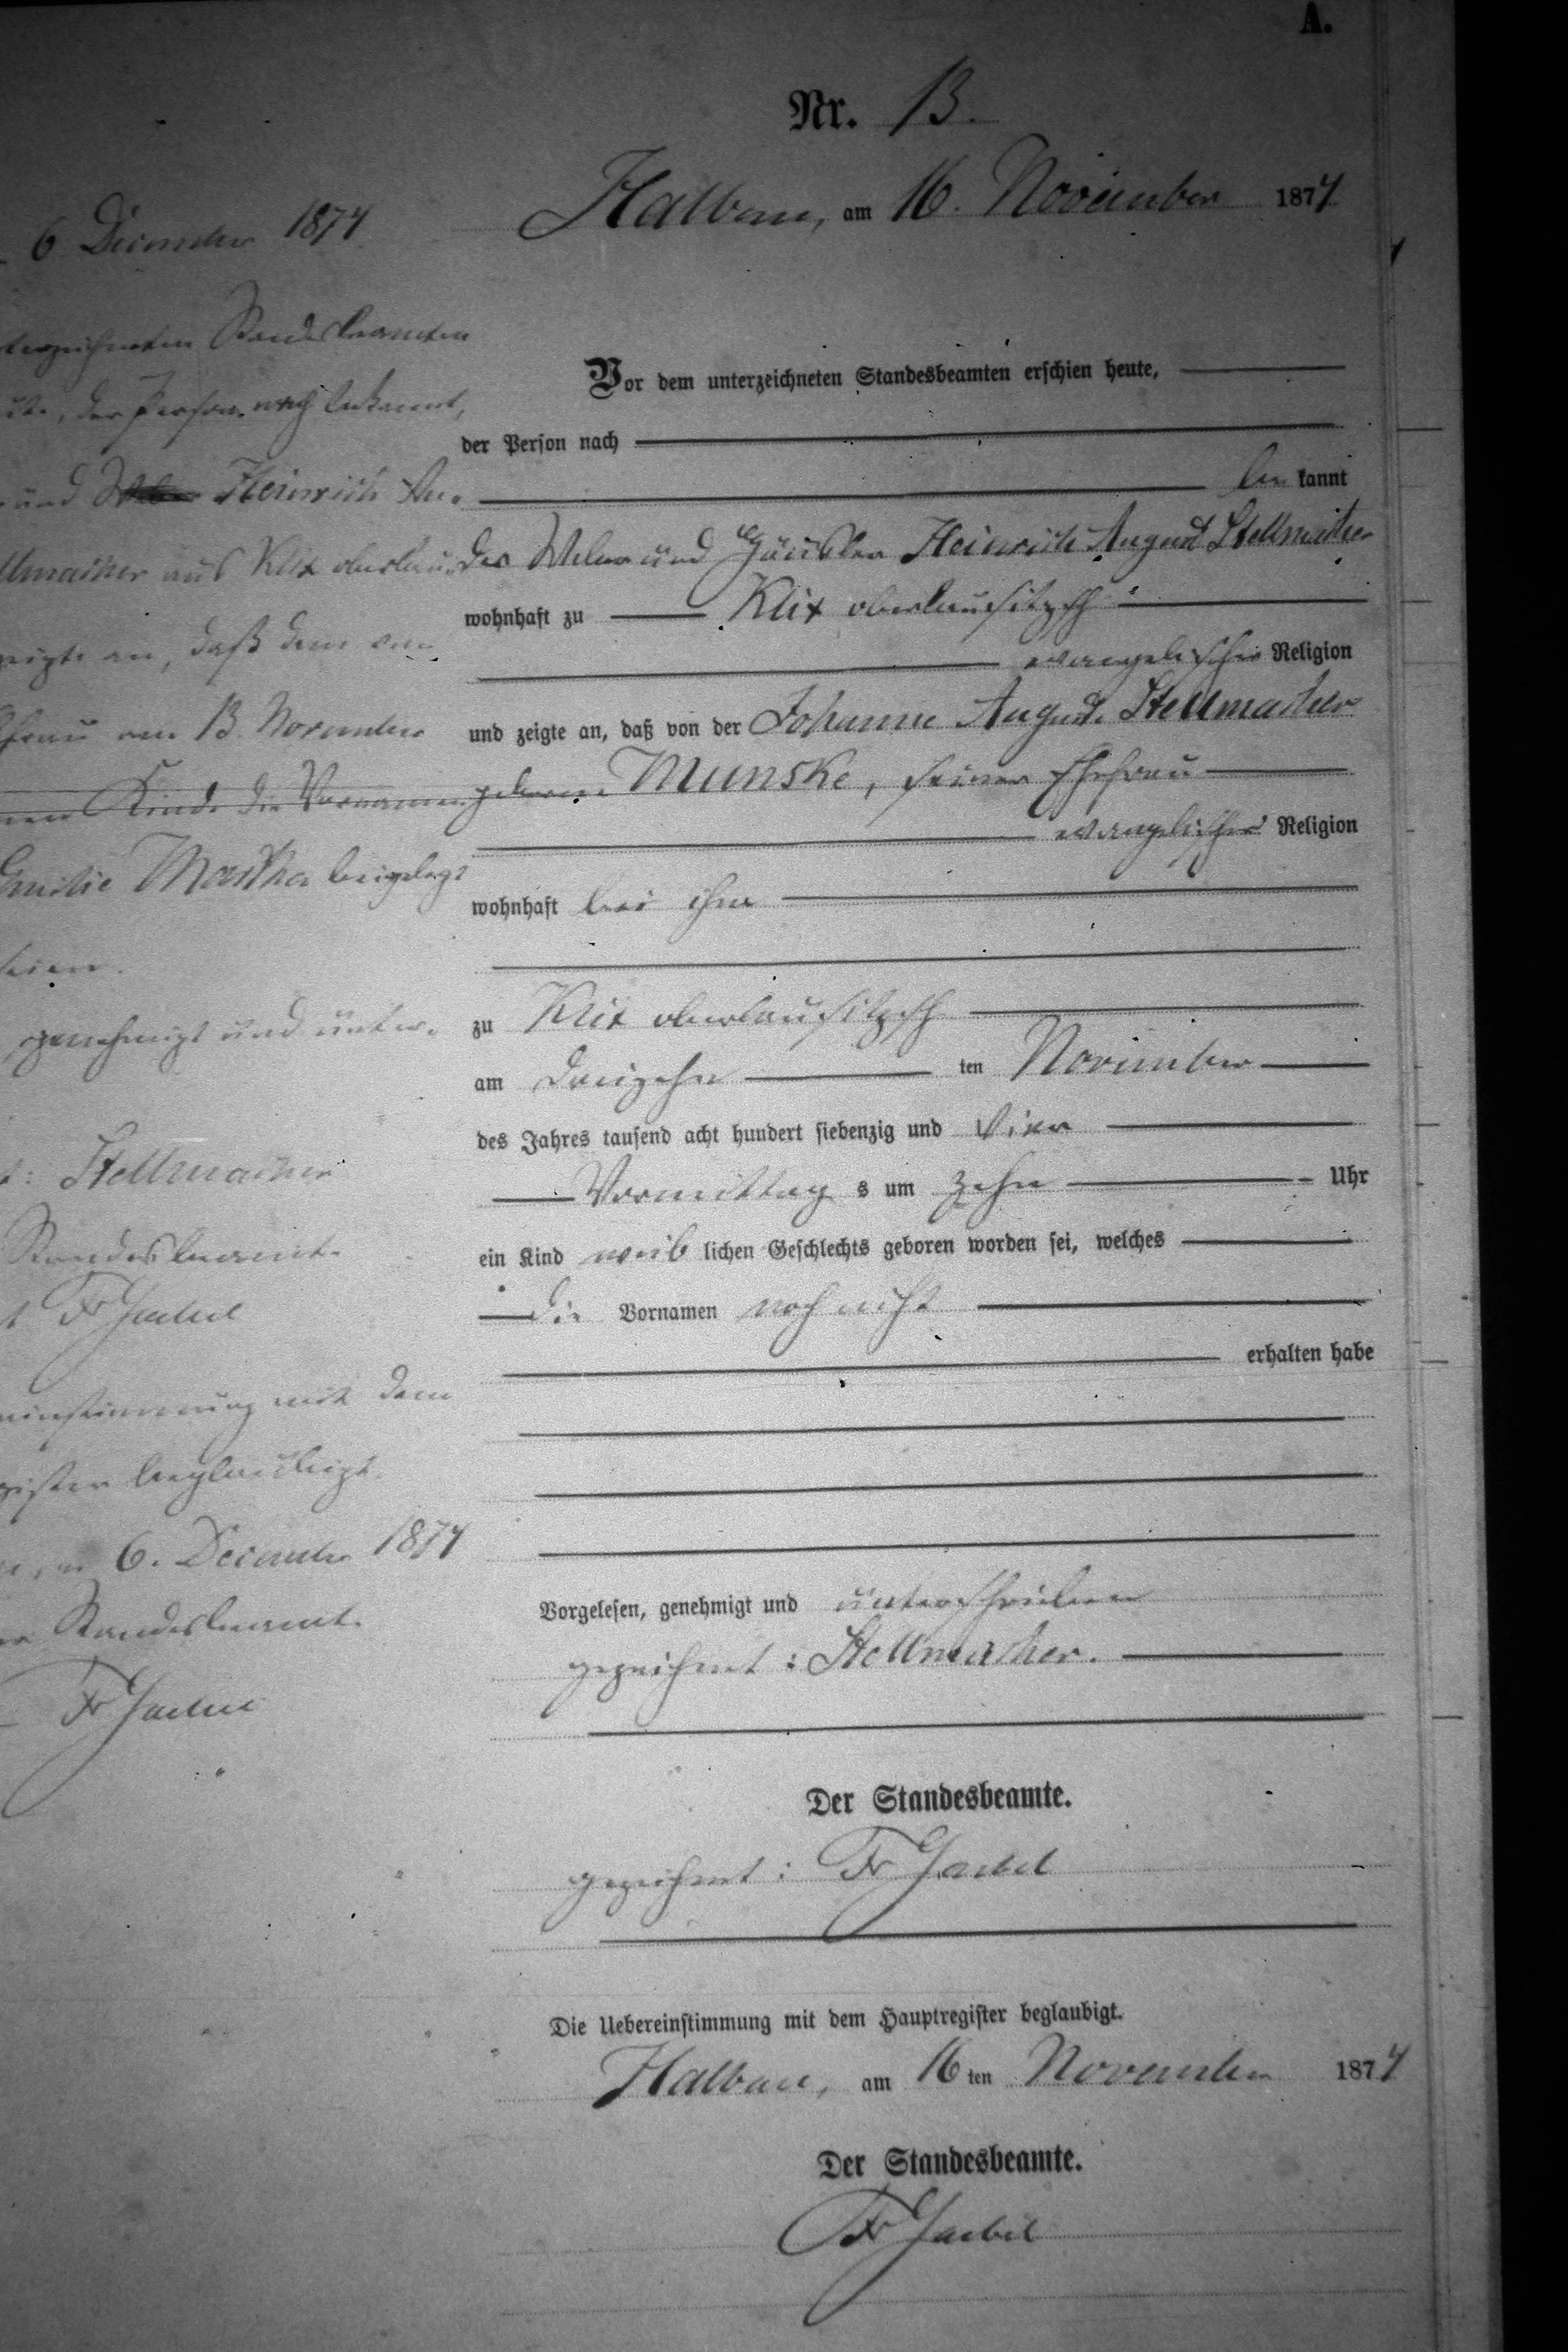 A.
Nr. 13.
Halbau, am 16. November 1874
Vor dem unterzeichneten Standesbeamten erschien heute,
der Person nach
be kannt
der Weber und Häusler Heinrich August Stellmacher
wohnhaft zu Klix oberlausitzsch
evangelischer Religion
und zeigte an, daß von der Johanne Auguste Stellmacher
geborene Munske, seiner Ehefrau
evangelischer Religion
wohnhaft bei ihm
zu Klix oberlausitzsch
am dreizehn ten November
des Jahres tausend acht hundert siebenzig und vier
Vormittag s um zehn Uhr
ein Kind weib lichen Geschlechts geboren worden sei, welches
die Vornamen noch nicht
erhalten habe
Vorgelesen, genehmigt und unterschrieben
gezeichnet: Stellmacher.
Der Standesbeamte.
gezeichnet: Fr
Die Uebereinstimmung mit dem Hauptregister beglaubigt.
Halbau, am 16 ten November 1874
Der Standesbeamte.
Fr
6 December 1874
terzeichneten Standesbeamten
ute, der Person nach bekannt,
und Heinrich Au-
llmacher aus Klix oberlau-
zeigte an, daß dem von
hefrau am 13. November
nen Kinde die Vornamen
Emilie Martha beigelegt
seien.
genehmigt und unter-
t: Stellmacher
Standesbeamte.
t Fr
einstimmung mit dem
gister beglaubigt.
6. December 1874
er Standesbeamte.
Fr